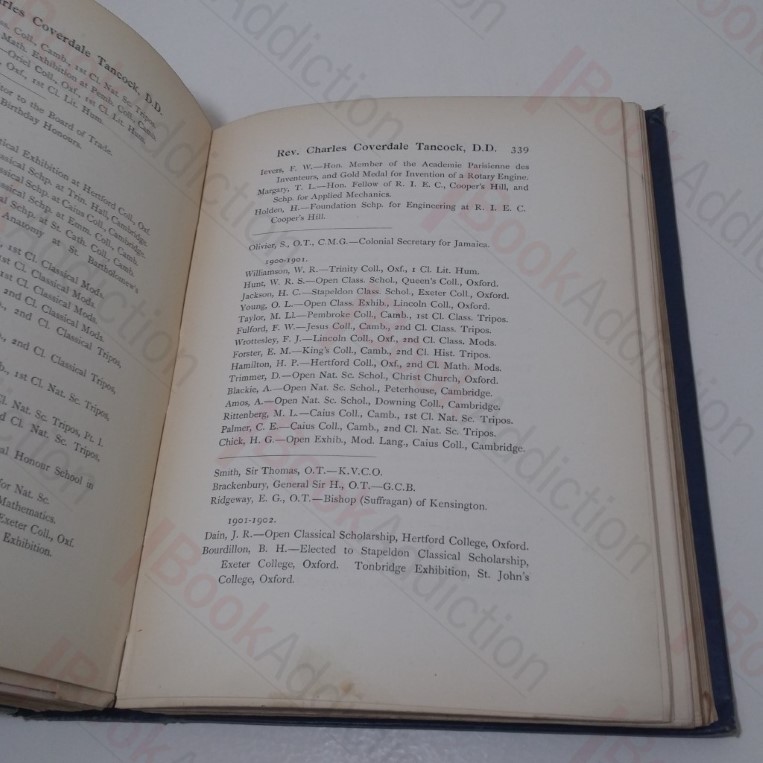 Charles Coverdale Tancock, D.D.
Coll., Camb., 1st Cl. Nat. Sc. Tripos.
Math. Exhibition at Pemb. Coll., Camb.
Oriel Coll., Oxf., 1st Cl. Lit. Hum.
Oxf., 1st Cl. Lit. Hum.
to the Board of Trade.
Birthday Honours.
Exhibition at Hertford Coll., Oxf.
Schp. at Trin. Hall, Cambridge.
Schp. at Caius Coll., Cambridge.
Schp. at Emm. Coll., Camb.
Schp. at St. Cath. Coll., Camb.
Anatomy at St. Bartholomew's
1st Cl. Classical Mods.
1st Cl. Classical Mods.
1st Cl. Classical Mods.
2nd Cl. Classical Mods.
2nd Cl. Classical Tripos,
2nd Cl. Classical Tripos,
1st Cl. Nat. Sc. Tripos,
Cl. Nat. Sc. Tripos, Pt. I.
Cl. Nat. Sc. Tripos.
Honour School in
for Nat. Sc.
Mathematics.
Exeter Coll., Oxf.
Exhibition.
Rev. Charles Coverdale Tancock, D.D. 339
Ievers, F. W.—Hon. Member of the Academie Parisienne des
Inventeurs, and Gold Medal for Invention of a Rotary Engine.
Margary, T. L.—Hon. Fellow of R. I. E. C., Cooper's Hill, and
Schp. for Applied Mechanics.
Holden, H.—Foundation Schp. for Engineering at R. I. E. C.
Cooper's Hill.
Olivier, S., O.T., C.M.G.—Colonial Secretary for Jamaica.
1900-1901.
Williamson, W. R.—Trinity Coll., Oxf., 1 Cl. Lit. Hum.
Hunt, W. R. S.—Open Class. Schol., Queen's Coll., Oxford.
Jackson, H. C.—Stapeldon Class. Schol., Exeter Coll., Oxford.
Young, O. L.—Open Class. Exhib., Lincoln Coll., Oxford.
Taylor, M. Ll.—Pembroke Coll., Camb., 1st Cl. Class. Tripos.
Fulford, F. W.—Jesus Coll., Camb., 2nd Cl. Class. Tripos.
Wrottesley, F. J.—Lincoln Coll., Oxf., 2nd Cl. Class. Mods.
Forster, E. M.—King's Coll., Camb., 2nd Cl. Hist. Tripos.
Hamilton, H. P.—Hertford Coll., Oxf., 2nd Cl. Math. Mods.
Trimmer, D.—Open Nat. Sc. Schol., Christ Church, Oxford.
Blackie, A.—Open Nat. Sc. Schol., Peterhouse, Cambridge.
Amos, A.—Open Nat. Sc. Schol., Downing Coll., Cambridge.
Rittenberg, M. L.—Caius Coll., Camb., 1st Cl. Nat. Sc. Tripos.
Palmer, C. E.—Caius Coll., Camb., 2nd Cl. Nat. Sc. Tripos.
Chick, H. G.—Open Exhib., Mod. Lang., Caius Coll., Cambridge.
Smith, Sir Thomas, O.T.—K.V.C.O.
Brackenbury, General Sir H., O.T.—G.C.B.
Ridgeway, E. G., O.T.—Bishop (Suffragan) of Kensington.
1901-1902.
Dain, J. R.—Open Classical Scholarship, Hertford College, Oxford.
Bourdillon, B. H.—Elected to Stapeldon Classical Scholarship,
Exeter College, Oxford. Tonbridge Exhibition, St. John's
College, Oxford.
BookAddiction